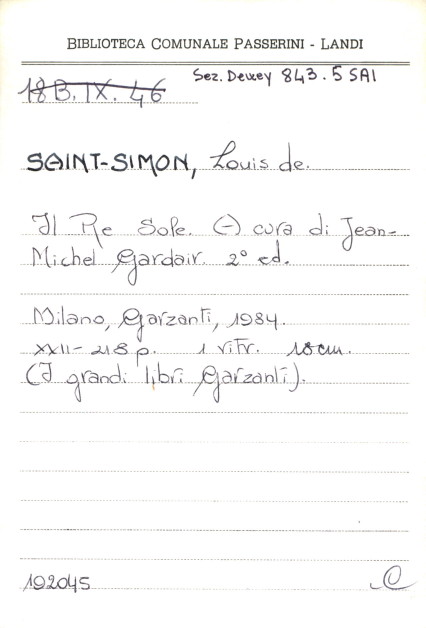 BIBLIOTECA COMUNALE PASSERINI - LANDI
Sez. Dewey 843.5 SAI
18B.IX.46
SAINT-SIMON, Louis de.
Il Re Sole. (-) cura di Jean-
Michel Gardair. 2° ed.
Milano, Garzanti, 1984.
XXII-218 p. 1 ritr. 18cm.
(I grandi libri Garzanti).
192045